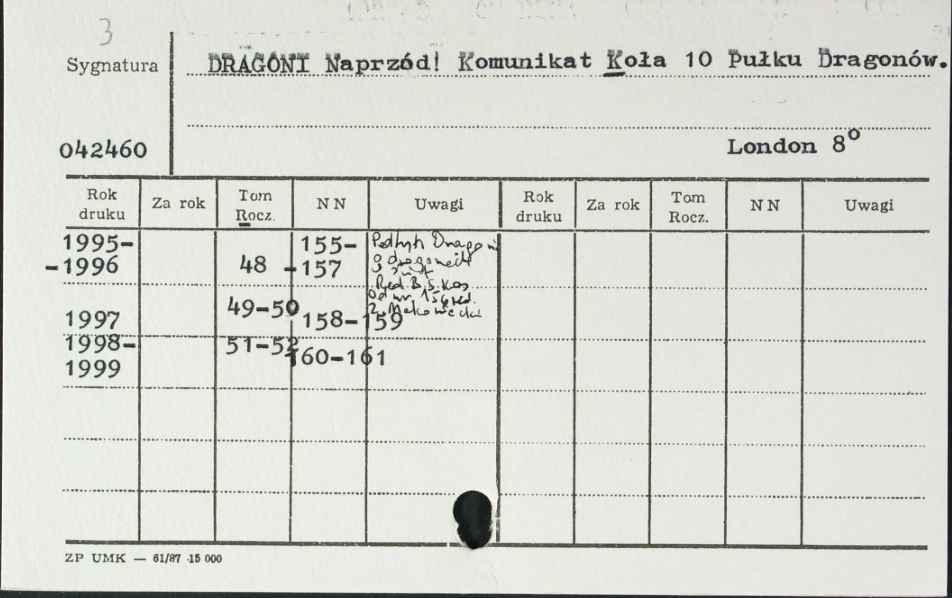 3
Sygnatura
DRAGONI Naprzód! Komunikat Koła 10 Pułku Dragonów.
042460
London 8o
Rok druku Za rok Tom Rocz. NN Uwagi Rok druku Za rok Tom Rocz. NN Uwagi
1995- 155-
-1996 48 -157
Red. B. S. Kos
od nr. 156 red.
49-50
1997 158-159
1998- 51-52 160-161
1999
ZP UMK — 61/87 15 000